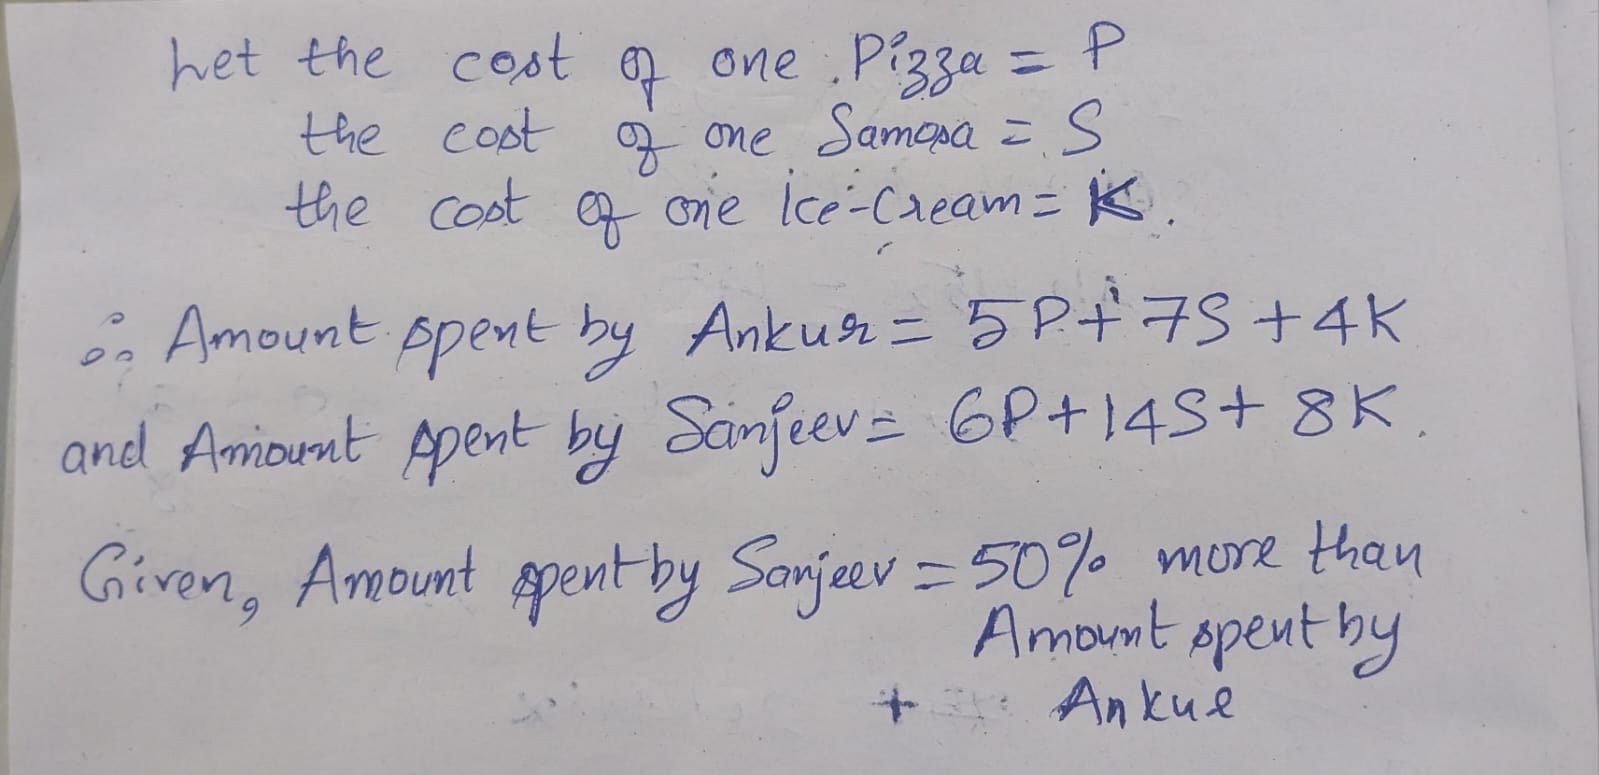 Let the cost of one Pizza = P
the cost of one Samosa = S
the cost of one Ice-Cream = K.
∴ Amount spent by Ankur = 5P + 7S + 4K
and Amount spent by Sanjeev = 6P + 14S + 8K.
Given, Amount spent by Sanjeev = 50% more than
Amount spent by
+ Ankur